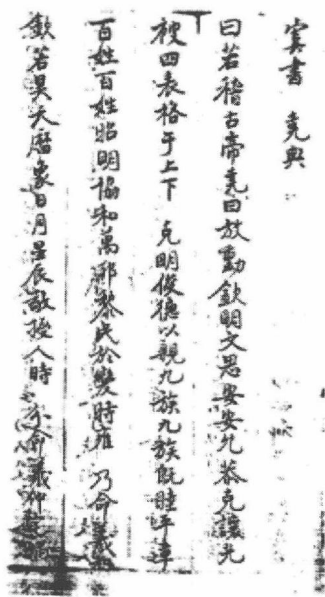 虞書 堯典
曰若稽古帝堯曰放勳欽明文思安安允恭克讓光
被四表格于上下 克明俊德以親九族九族既睦平章
百姓百姓昭明協和萬邦黎民於變時雍 乃命羲
欽若昊天曆象日月星辰敬授人時 分命羲仲